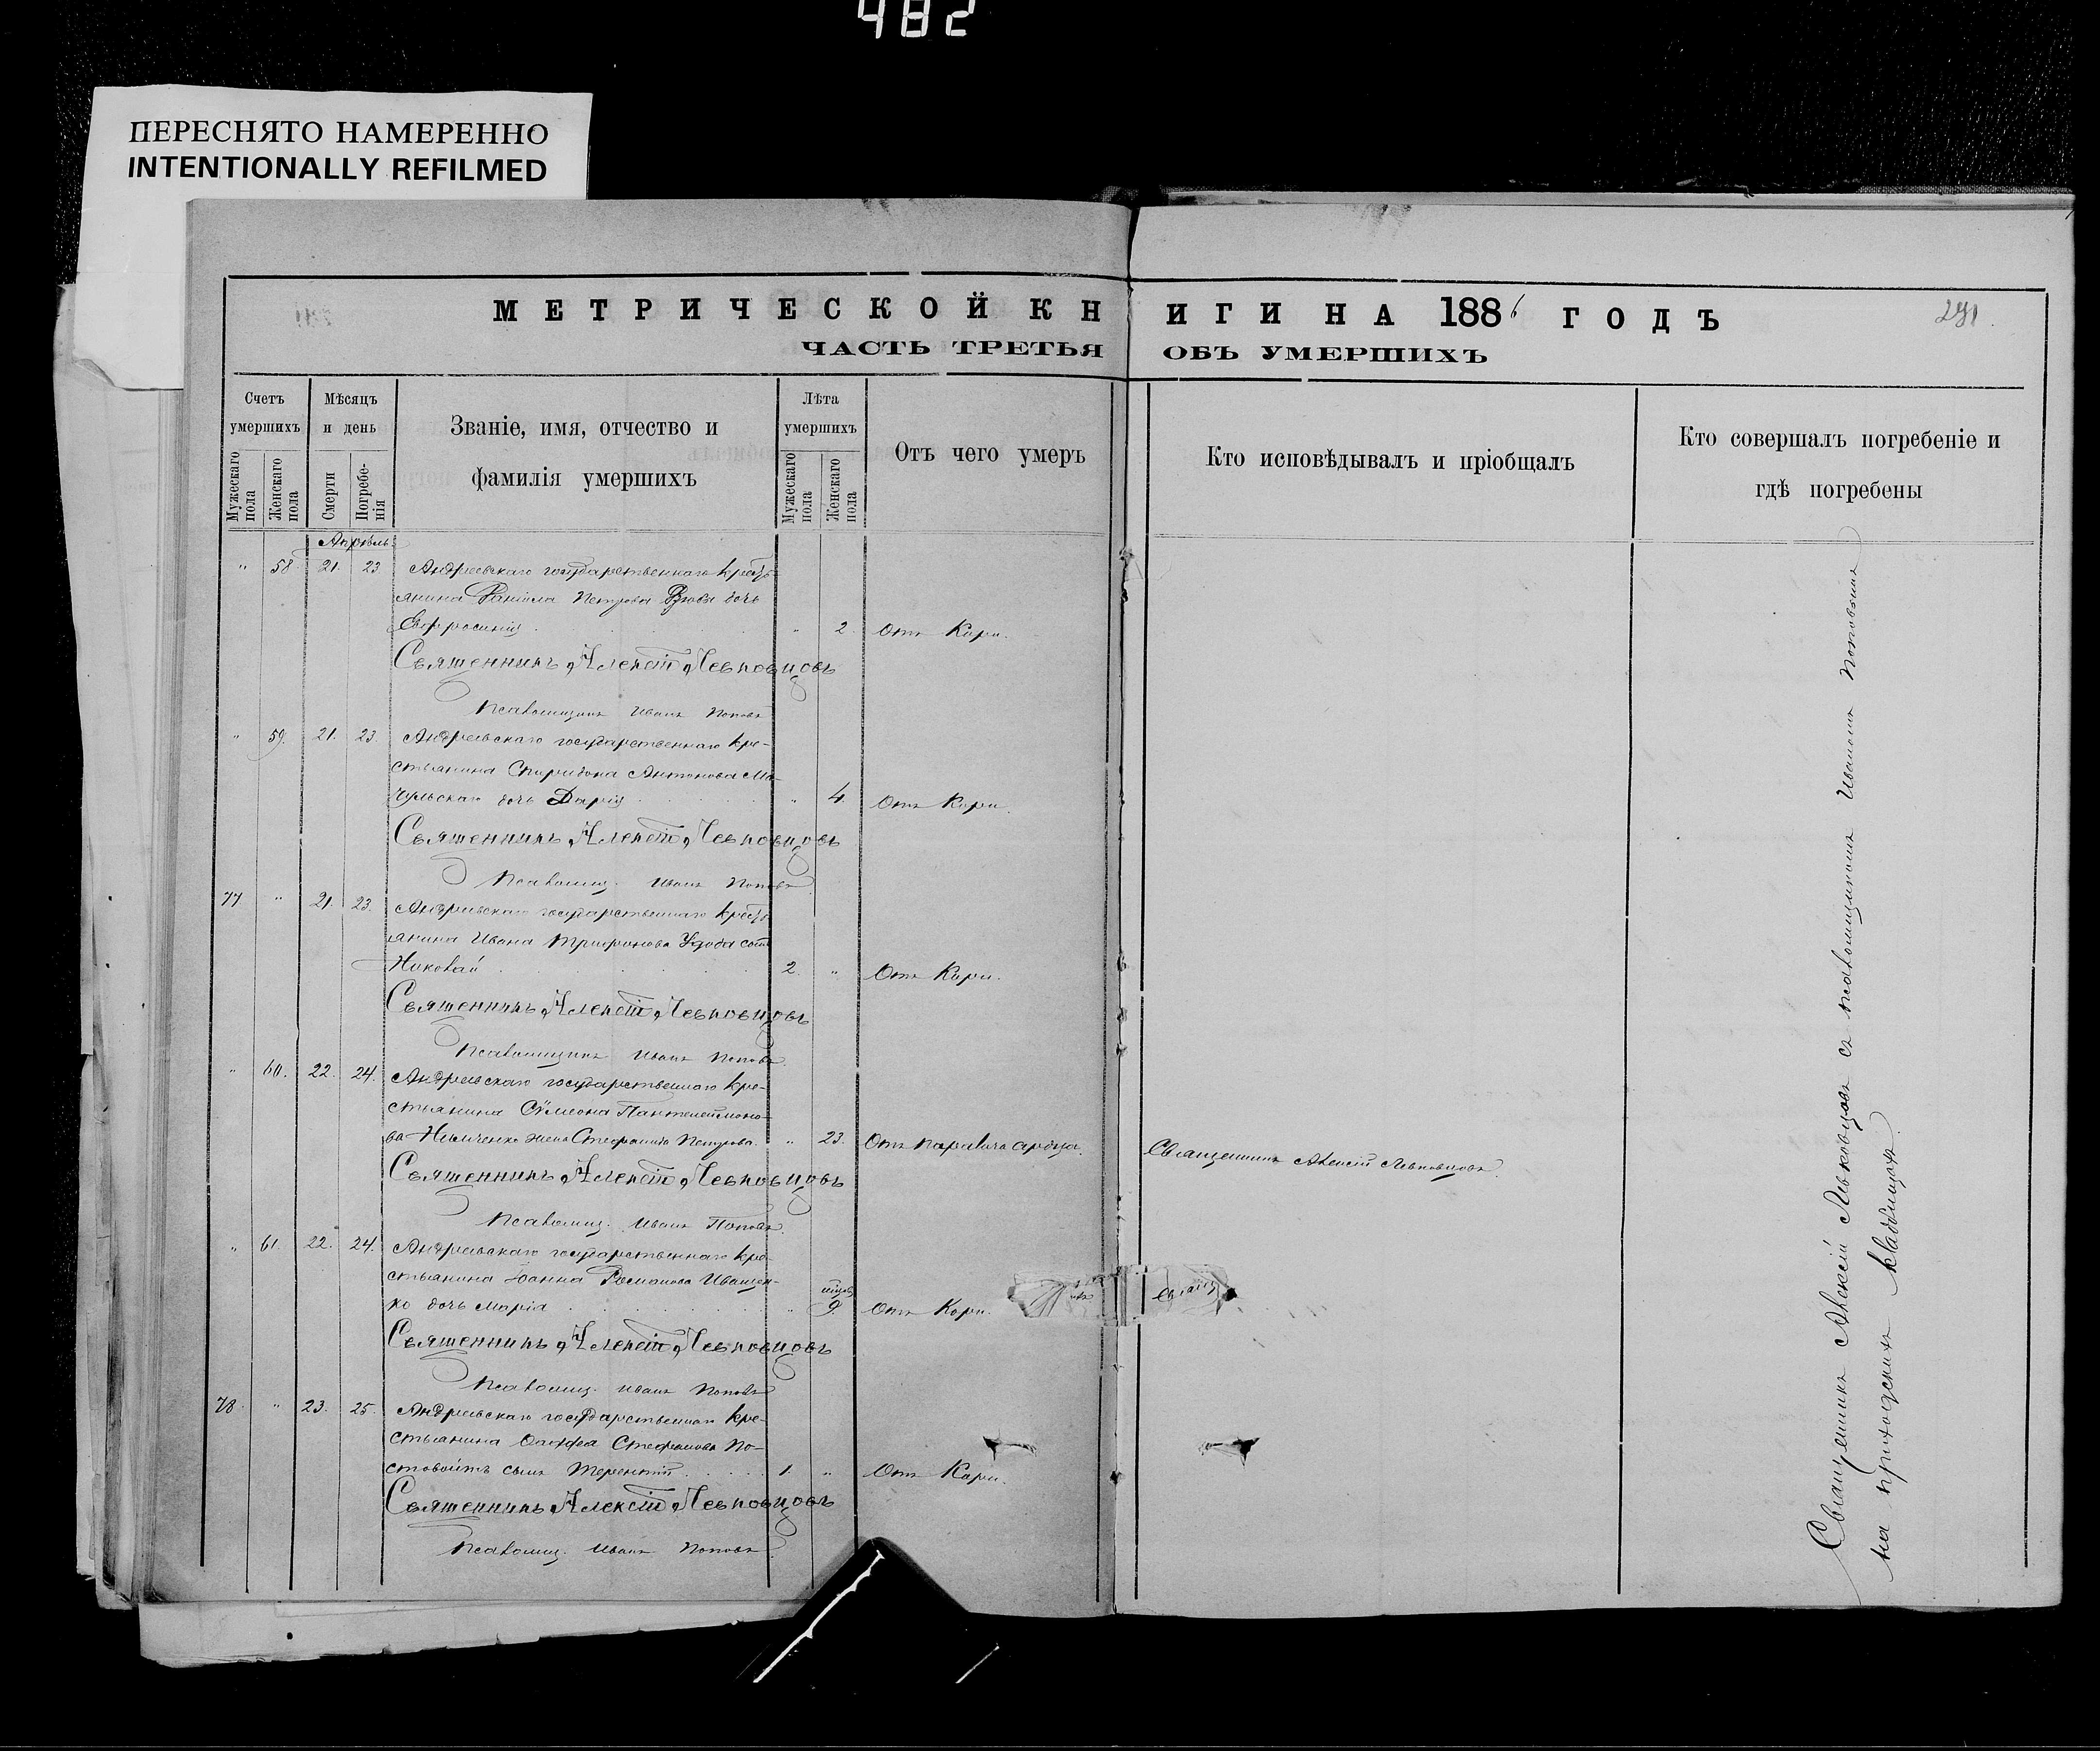 482
ПЕРЕСНЯТО НАМЕРЕННО
INTENTIONALLY REFILMED
МЕТРИЧЕСКОЙ КНИГИ НА 1886 ГОДЪ
291.
ЧАСТЬ ТРЕТЬЯ ОБЪ УМЕРШИХЪ
Счетъ умершихъ
Мужескаго пола
Женскаго пола
Мѣсяцъ и день
Смерти
Погребенія
Званіе, имя, отчество и
фамилія умершихъ
Лѣта умершихъ
Мужескаго пола
Женскаго пола
Отъ чего умеръ
Кто исповѣдывалъ и пріобщалъ
Кто совершалъ погребеніе и
гдѣ погребены
Апрѣль
" 58 21. 23 Андреевскаго государственнаго кресть-
янина Данiила Петрова дочь
Евфросинія " 2 Отъ Кори.
Священникъ Алексій Левковцовъ
Псаломщикъ Иванъ Поповъ
" 59. 21. 23. Андреевскаго государственнаго кре-
стьянина Спиридона Антонова Ма-
чульскаго дочь Дарія " 4. Отъ Кори.
Священникъ Алексій Левковцовъ
Псаломщ. Иванъ Поповъ
77 " 21. 23. Андреевскаго государственнаго кресть-
янина Ивана Трифонова Удода сынъ
Николай 2. " Отъ Кори.
Священникъ Алексій Левковцовъ
Псаломщикъ Иванъ Поповъ
" 60. 22. 24. Андреевскаго государственнаго кре-
стьянина Сѵмеона Пантелеймоно-
ва Нимченко жена Стефанида Петрова. " 23. Отъ паралича сердца. Священникъ Алексій Левковцовъ.
Священникъ Алексій Левковцовъ
Псаломщ. Иванъ Поповъ
" 61. 22. 24. Андреевскаго государственнаго кре-
стьянина Іоанна Романова Иващен-
ко дочь Марія " 9. Отъ Кори.
Священникъ Алексій Левковцовъ
Псаломщ. Иванъ Поповъ
78 " 23. 25. Андреевскаго государственнаго кре-
стьянина Стефанова По-
стовойтъ сынъ Терентій 1. " Отъ Кори.
Священникъ Алексій Левковцовъ
Псаломщ. Иванъ Поповъ
Священникъ Алексій Левковцовъ съ псаломщикомъ Иваномъ Поповымъ
на приходскихъ кладбищахъ.